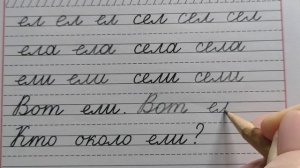 ел ел ел сел сел сел
ела ела села села
ели ели сели сели
Вот ели. Вот ел
Кто около ели?